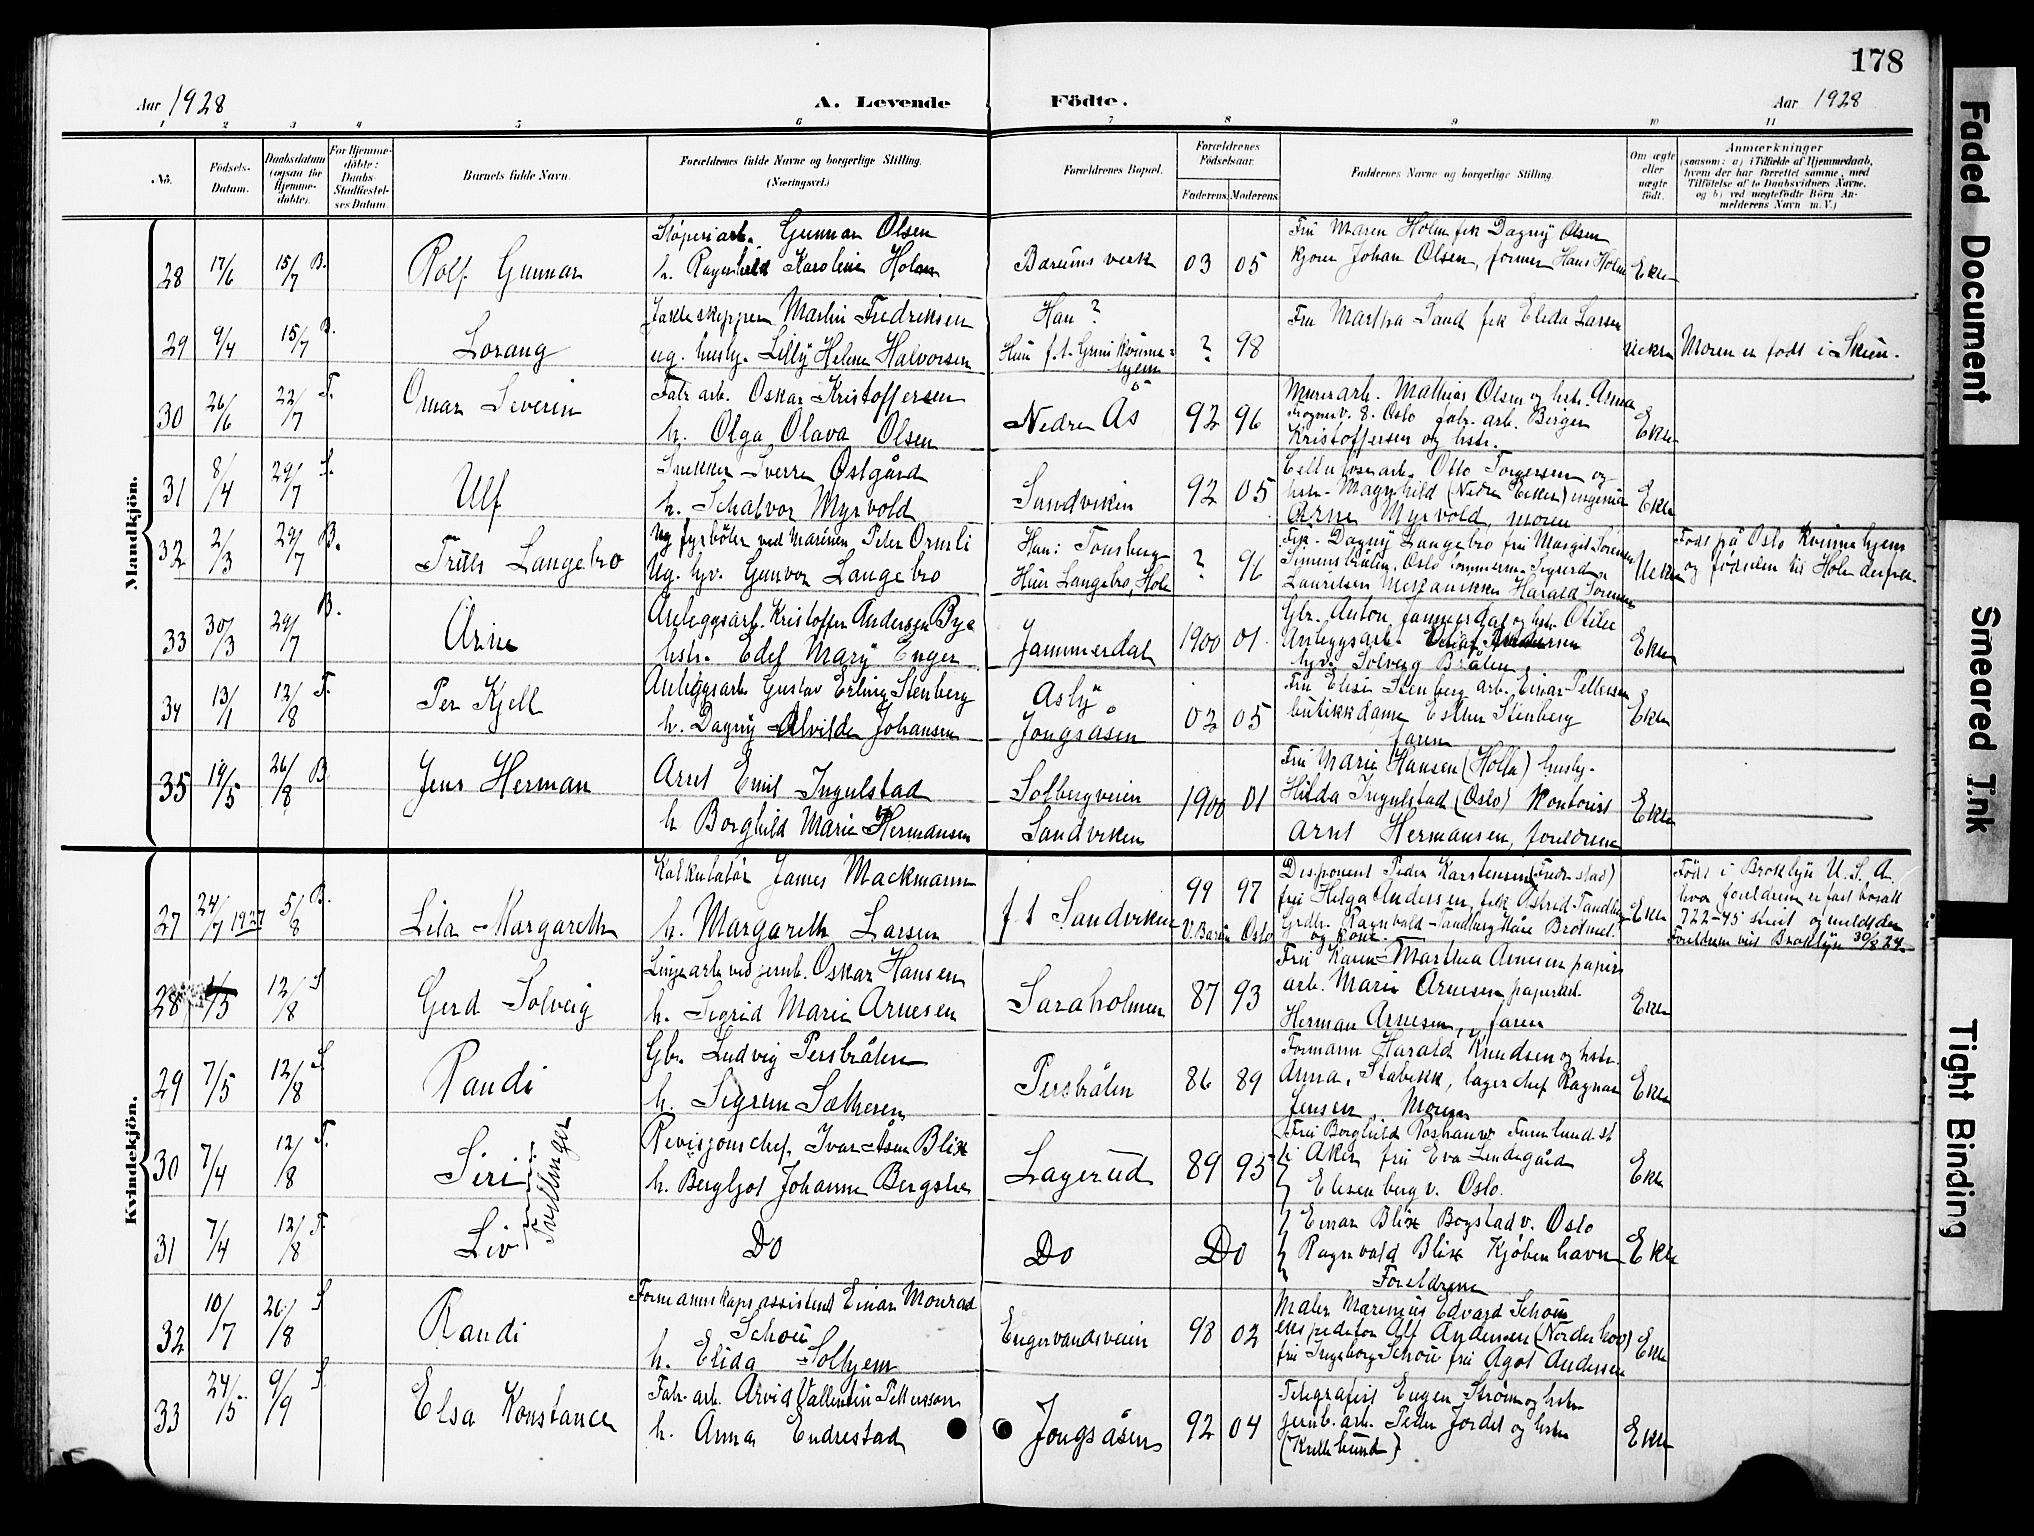 178
Aar 1928
A. Levende
Födte.
Aar 1928
1 2 3 4 5 6 7 8 9 10 11
No.
Födsels-
Datum.
Daabsdatum
(ogsaa for
Hjemme-
döbte).
For Hjemme-
döbte:
Daabs-
Stadfæstel-
ses Datum.
Barnets fulde Navn.
Forældrenes fulde Navne og borgerlige Stilling.
(Næringsvei.)
Forældrenes Bopæl.
Forældrenes
Födselsaar.
Faderens
Moderens
Faddernes Navne og borgerlige Stilling
Om ægte
eller
uægte
födt.
Anmærkninger
(saasom: a) i Tilfælde af Hjemmedaab,
hvem der har forrettet samme, med
Tilföielse af to Daabsvidners Navne,
og b) ved uægtefödte Börn An-
melderens Navn m. V.)
Mandkjön.
28 17/6 15/7 B. Rolf Gunnar
Støperiarb. Gunnar Olsen
h. Ragnhild Karoline Holm
Bærums verk 03 05
Fru Maren Holm frk Dagny Olsen
kjører Johan Olsen, former Hans Holm
Ekte
29 9/4 15/7 B. Lorang
Jakteskipper Martin Fredriksen
ug. husby. Lilly Helene Halvorsen
Han ?
Hun f.t. Grini kvinne=
hjem
? 98
Fru Martha Sand frk Elida Larsen
Uekte
Moren er født i Skien.
30 26/6 22/7 F. Omar Severin
Fabr arb. Oskar Kristoffersen
h. Olga Olava Olsen
Nedre Ås 92 96
Murerarb. Mathias Olsen og hstr. Anna
Frognerv. 8. Oslo fabr. arb. Birger
Kristoffersen og hstr.
Ekte
31 8/4 29/7 S. Ulf
Snekker Sverre Østgård
h. Schalvor Myrvold
Sandviken 92 05
Cellulosearb. Otto Torgersen og
hstr. Magnhild (Nedre Eiker) ingeniør
Arne Myrvold, moren
Ekte
32 2/3 29/7 B. Truls Langebro
Ug fyrbøter ved Marinen Peter Ormli
Ug. hv. Gunvor Langebro
Han: Tønsberg
Hun Langebro, Hole
? 96
Frk. Dagny Langebro fru Margit Sørensen
Simensbråten, Oslo tømmerm. Sigurd
Lauritsen Mekanikker Harald Sørensen
Uekte
Født på Oslo Kvinnehjem
og fødselen til Hole derfra.
33 30/3 29/7 B. Arne
Anleggsarb. Kristoffer Andersen Bye
hstr. Edel Mary Enger
Jammerdal 1900 01.
Gbr. Anton Jammerdal og hstr. Otilie
Anleggsarb. Andersen
hv. Solveig Bråten
Ekte
34 13/1 12/8 F. Per Kjell
Anleggsarb Gustav Erling Stenberg
h. Dagny Alvilde Johansen
Asly
Jongsåsen
02 05
Fru Elise Stenberg arb. Einar Pettersen
butikkdame Esther Stenberg
faren
Ekte
35 19/5 26/8 B Jens Herman
Arnt Emil Ingulstad
h Borghild Marie Hermansen
Solbergveien
Sandviken
1900 01
Fru Marie Hansen (Holla) husby-
Hilda Ingulstad (Oslo) Kontorist
Arnt Hermansen, foreldrene
Ekte
Kvindekjön.
27 24/7 1927 5/8 B. Lila Margareth
Kalkulatør James Mackmann
h. Margareth Larsen
f.t Sandviken
99 97
V. Bærum Oslo
Disponent Peder Karstensen (Fredrikstad)
fru Helga Andersen, frk Astrid Tandberg
Grdbr. Ragnvald Tandberg Kåre Brømel.
og Kone
Ekte
Født i Broklyn U. S. A.
hvor foreldrene er fast bosatt
722-45 street og meldt den
Foreldrene viet Broklyn 30/8 24
28 /5 12/8 S Gerd Solveig
Linjearb ved jernb. Oskar Hansen
h. Sigrid Marie Arnesen
Saraholmen 87 93
Fru Karen Marthea Arnesen papir
arb. Marie Arnesen papirarb.
Herman Arnesen, faren
Ekte
29 7/5 12/8 S Randi
Gbr. Ludvig Persbråten
h. Sigrun Sætheren
Persbråten 86 89
Formann Harald Knudsen og hstr.
Anna, Stabekk, lagerchef Ragnar
Jensen, Moren
Ekte
30 7/4 12/8 F. Siri
Tvillinger
Revisjonschef Ivar Åsen Blix
h. Bergljot Johanne Bergslie
Lagerud 89 95
Fru Borghild Roshauw Furulund st
i Aker fru Eva Lindegård
Elisenberg v. Oslo.
Ekte
31 7/4 12/8 F. Liv
Do Do Do
Einar Blix Bogstadv. Oslo
Ragnvald Blix Kjøbenhavn
Foreldrene
Ekte
32 10/7 26/8 S Randi
Formannskapsassistent Einar Monrad
Schou
h. Elida Solhjem
Engervandsveien 98 02
Maler Marenius Edvard Schou
ekspeditør Alf Andersen (Norderhov)
fru Ingeborg Schou fru Agot Andersen
Ekte
33 24/5 9/9 S. Elsa Konstance
Fabr. arb. Arvid Vallentin Pettersson
h. Anna Endrestad
Jongsåsen 92 04
Telegrafist Eugen Strøm og hstr
jernb. arb. Peder Jordet og hstr
(Krillebund)
Ekte
Faded Document
Smeared Ink
Tight Binding